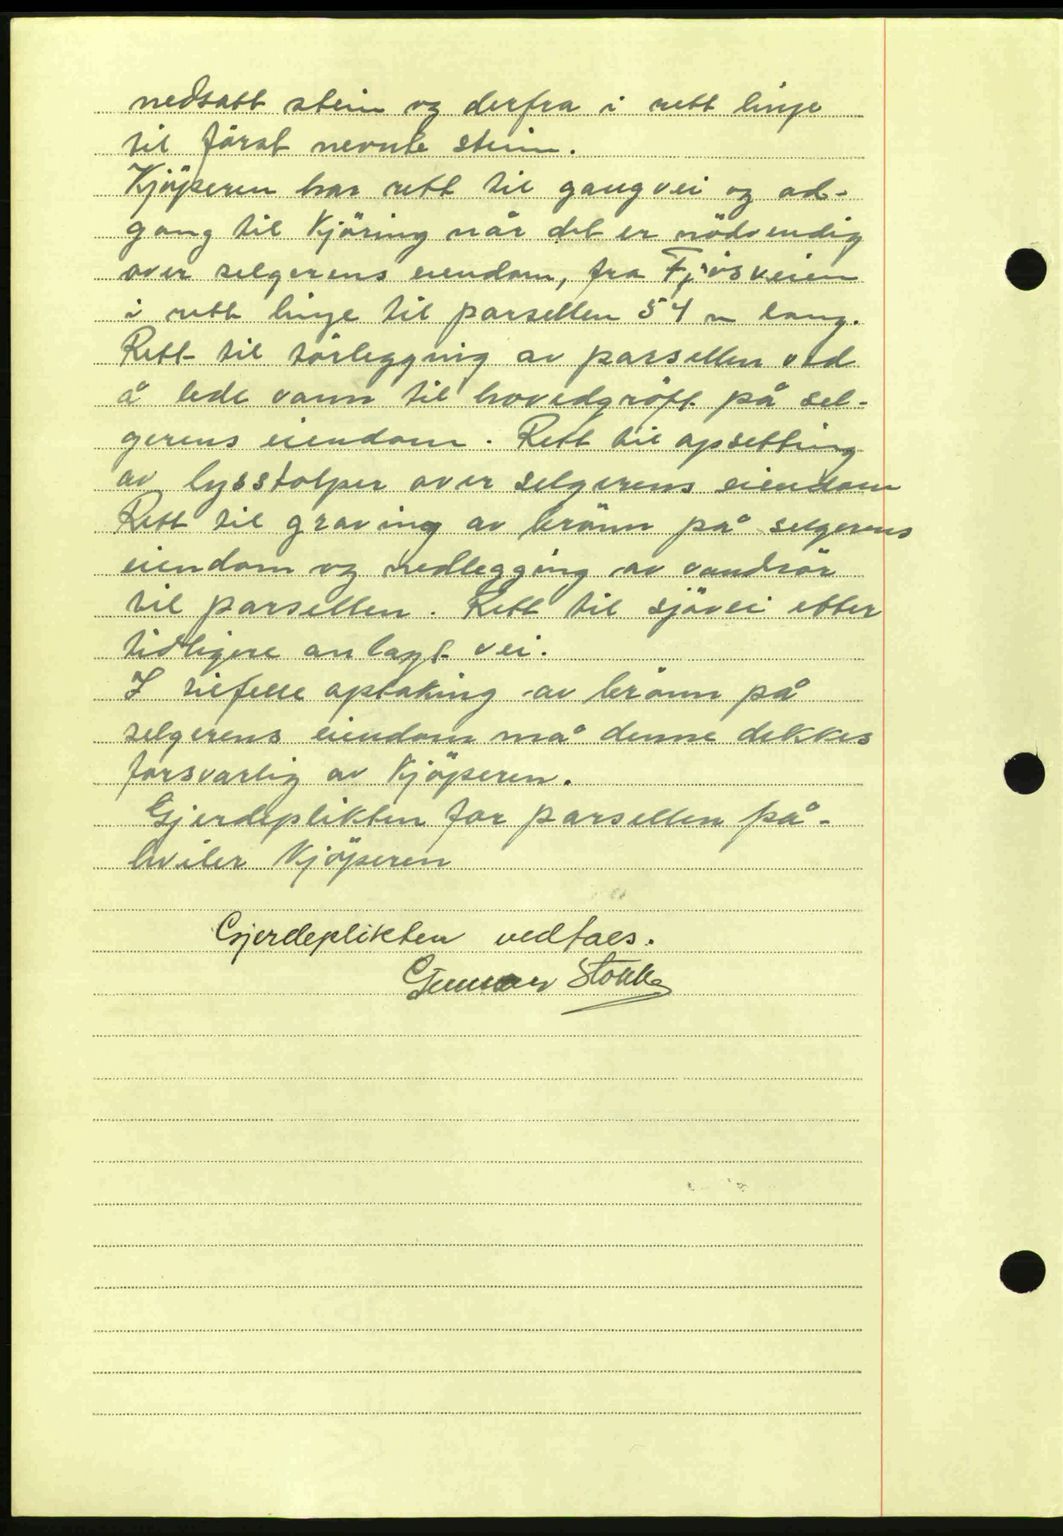 nedsatt stein og derfra i rett linje
til först nevnte stein.
Kjöperen har rett til gangvei og ad-
gang til Kjöring når det er nödvendig
over selgerens eiendom, fra Fjösveien
i rett linje til parsellen 54 m lang.
Rett til törlegging av parsellen ved
å lede vann til hovedgröft på sel-
gerens eiendom. Rett til opsetting
av lysstolper over selgerens eiendom
Rett til graving av brönn på selgerens
eiendom og nedlegging av vandrör
til parsellen. Rett til sjövei etter
tidligere anlagt vei.
I tilfelle optaking av brönn på
selgerens eiendom må denne dekkes
forsvarlig av Kjöperen.
Gjerdeplikten for parsellen på-
hviler Kjöperen
Gjerdeplikten vedtaes.
Gunnar Stokke